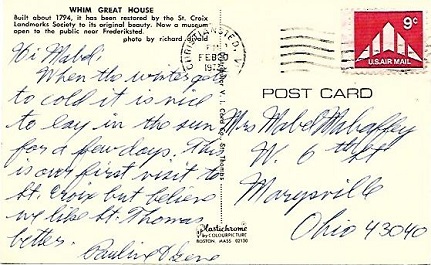 WHIM GREAT HOUSE
Built about 1794, it has been restored by the St. Croix
Landmarks Society to its original beauty. Now a museum
open to the public near Frederiksted.
photo by richard
Hi Mabel:
When the winter get
to cold it is nice
to lay in the sun
for a few days. This
is our first visit to
St. Croix but believe
we like St. Thomas
better.
Pauline & Gene
CHRISTIANSTED, V.I.
FEB
9c
U.S. AIR MAIL
POST CARD
Mrs Mabel Mahaffey
W. 6th St
Marysville
Ohio 43040
Plastichrome
by COLOURPICTURE
BOSTON, MASS. 02130